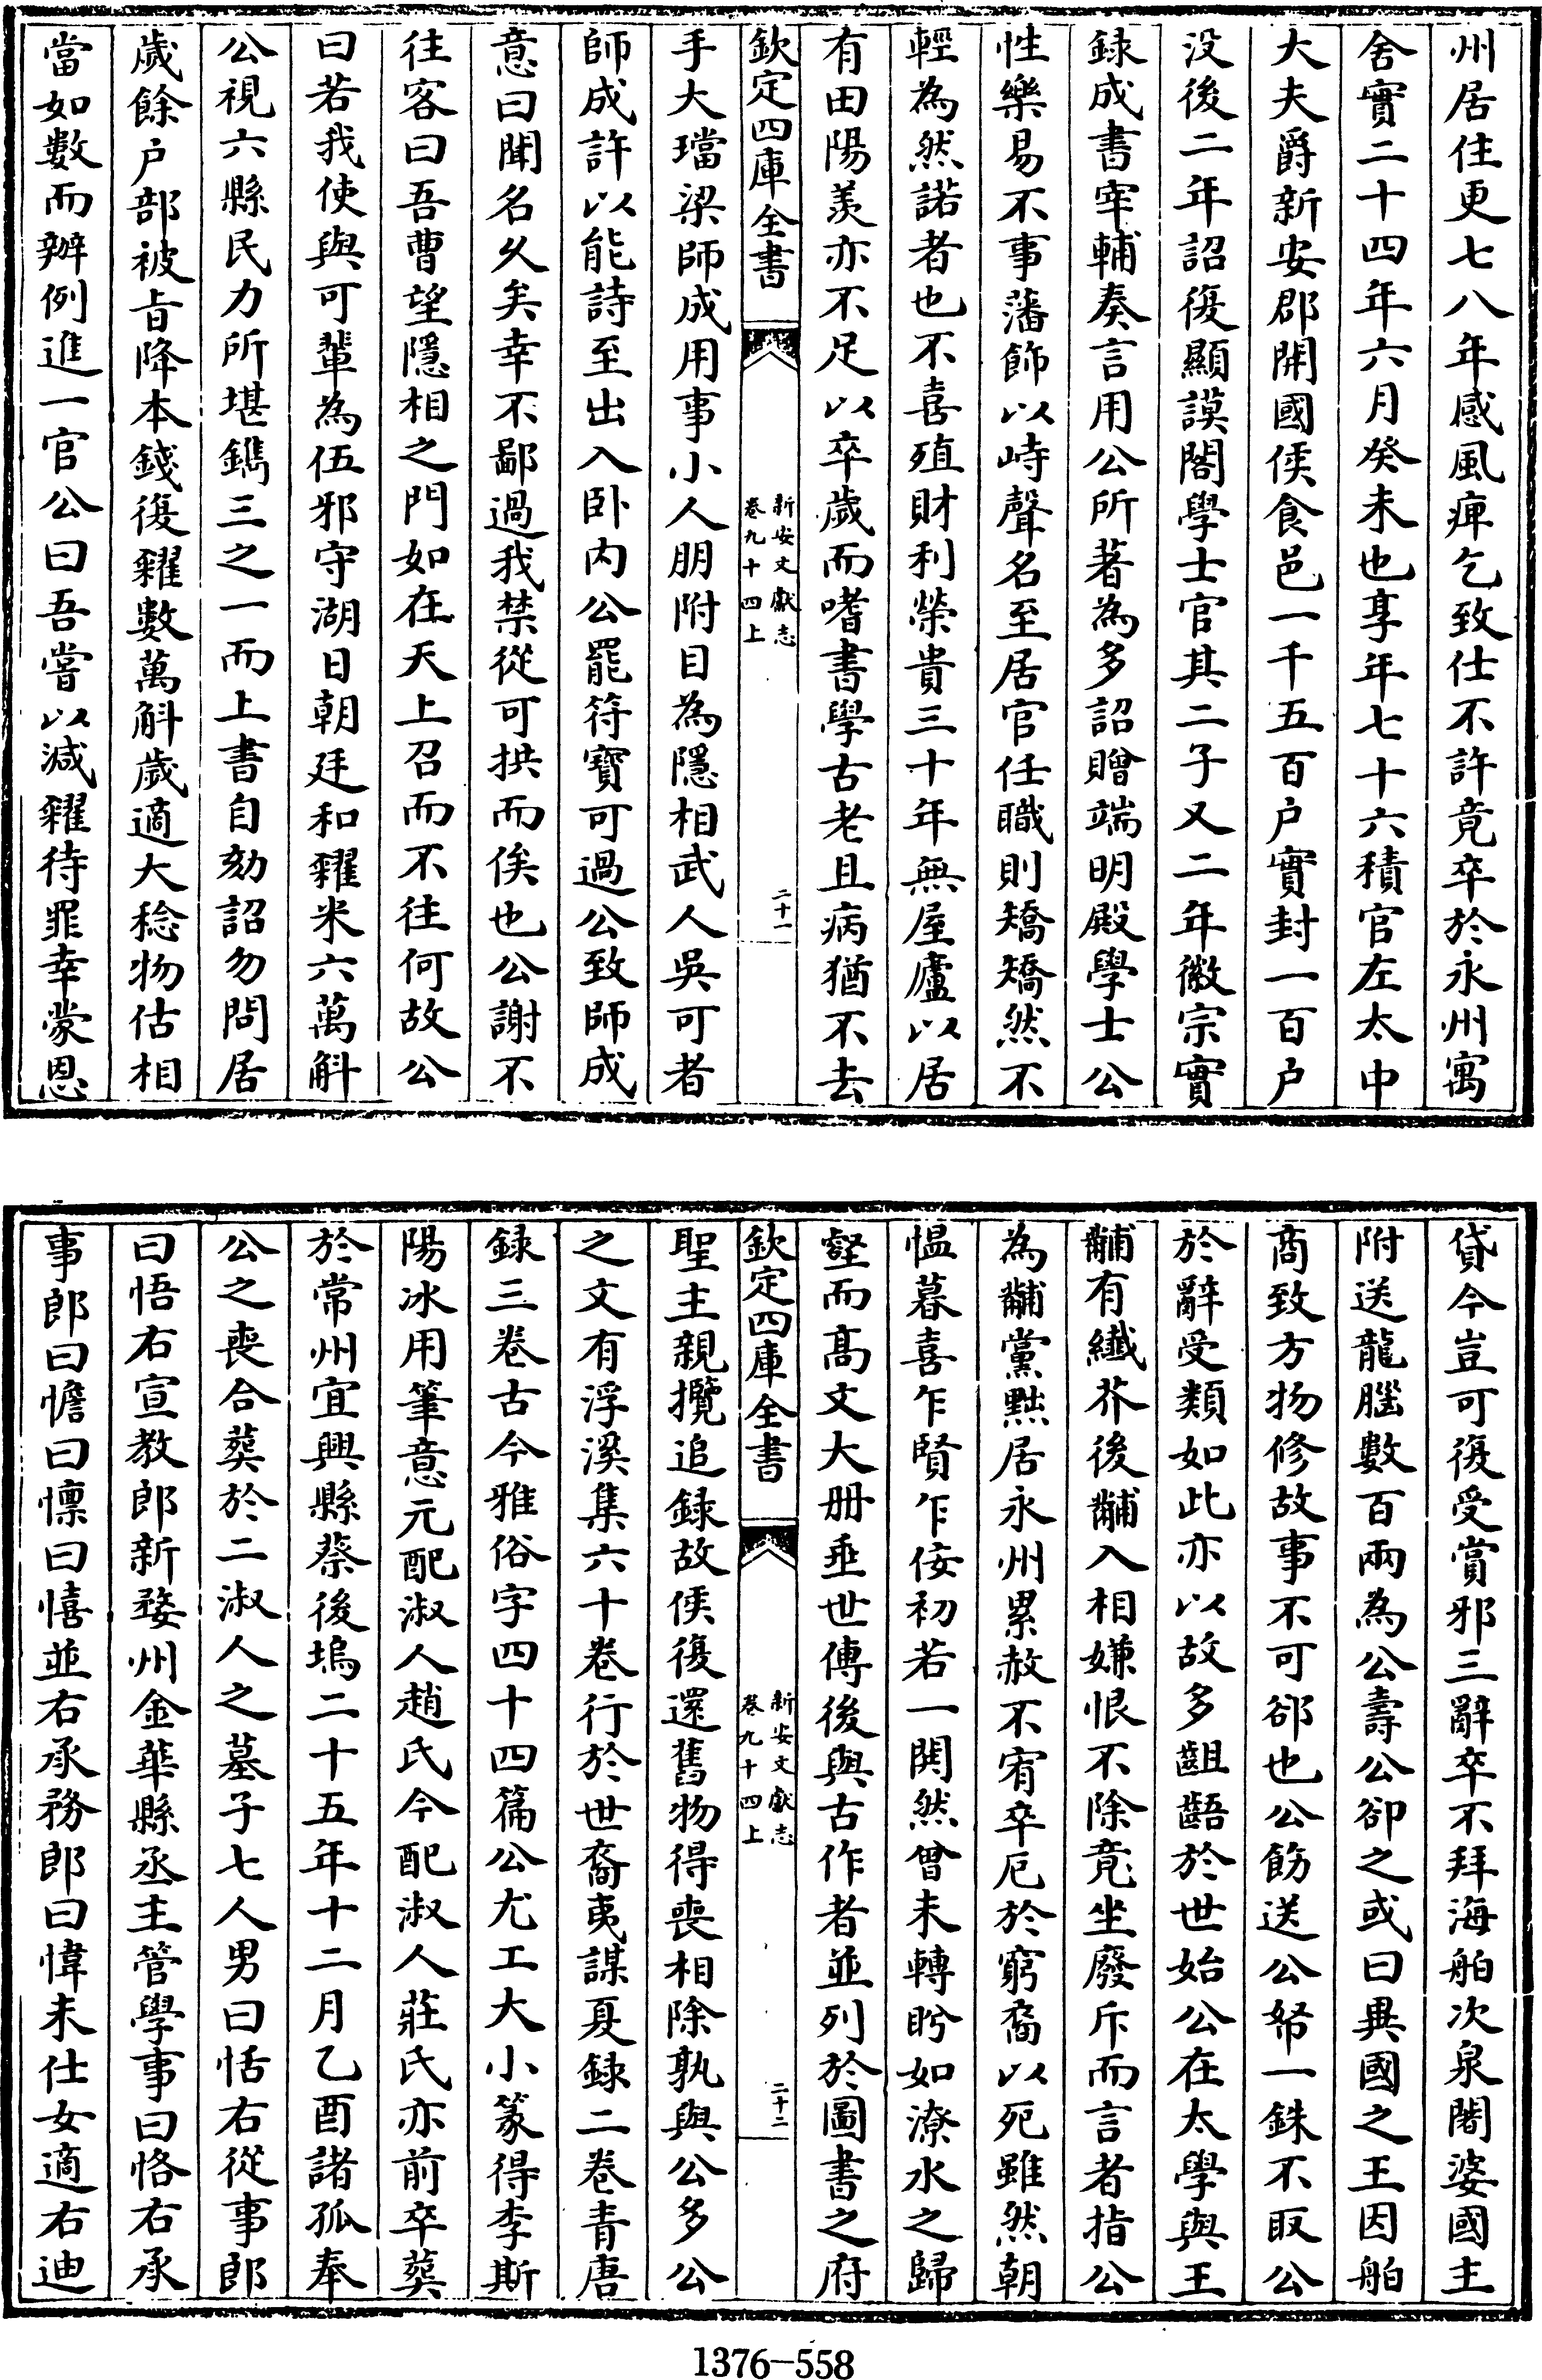 州居住更七八年感風痺乞致仕不許竟卒於永州寓
舍實二十四年六月癸未也享年七十六積官左太中
大夫爵新安郡開國侯食邑一千五百户實封一百户
没後二年詔復顯謨閣學士官其二子又二年徽宗實
録成書宰輔奏言用公所著為多詔贈端明殿學士公
性樂易不事藩飾以峙聲名至居官任職則矯矯然不
輕為然諾者也不喜殖財利榮貴三十年無屋廬以居
有田陽羡亦不足以卒歲而嗜書學古老且病猶不去
欽定四庫全書
新安文獻志
卷九十四上
二十一
手大璫梁師成用事小人朋附目為隱相武人吳可者
師成許以能詩至出入卧内公罷符寶可過公致師成
意曰聞名久矣幸不鄙過我禁從可拱而俟也公謝不
往客曰吾曹望隱相之門如在天上召而不往何故公
曰若我使與可輩為伍邪守湖日朝廷和糴米六萬斛
公視六縣民力所堪鐫三之一而上書自劾詔勿問居
歲餘户部被㫖降本錢復糴數萬斛歲適大稔物估相
當如數而辦例進一官公曰吾嘗以減糴待罪幸蒙恩
貸今豈可復受賞邪三辭卒不拜海舶次泉闍婆國主
附送龍腦數百兩為公壽公卻之或曰異國之王因舶
商致方物修故事不可卻也公飭送公帑一銖不取公
於辭受類如此亦以故多齟齬於世始公在太學與王
黼有纎芥後黼入相嫌恨不除竟坐廢斥而言者指公
為黼黨黜居永州累赦不宥卒厄於窮裔以死雖然朝
愠暮喜乍賢乍佞初若一閧然曾未轉盻如潦水之歸
壑而髙文大册垂世傳後與古作者並列於圖書之府
欽定四庫全書
新安文獻志
卷九十四上
二十二
聖主親攬追録故侯復還舊物得喪相除孰與公多公
之文有浮溪集六十卷行於世裔夷謀夏録二卷青唐
録三卷古今雅俗字四十四篇公尤工大小篆得李斯
陽冰用筆意元配淑人趙氏今配淑人莊氏亦前卒葬
於常州宜興縣蔡後塢二十五年十二月乙酉諸孤奉
公之喪合葬於二淑人之墓子七人男曰恬右從事郎
曰悟右宣教郎新婺州金華縣丞主管學事曰恪右承
事郎曰憺曰懔曰憘並右承務郎曰愇未仕女適右迪
1376-558